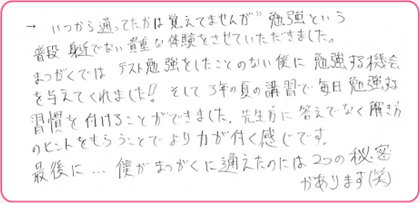 → いつから通ってたかは覚えてませんが” 勉強という
普段 身近でない貴重な体験をさせていただきました。
まつがくでは テスト勉強をしたことのない僕に 勉強する機会
を与えてくれました!! そして 3年の夏の講習で毎日勉強する
習慣を付けることができました。先生方に 答えでなく解き方
のヒントをもらうことで より力が付く感じです。
最後に… 僕がまつがくに通えたのには 2つの秘密
があります(笑)